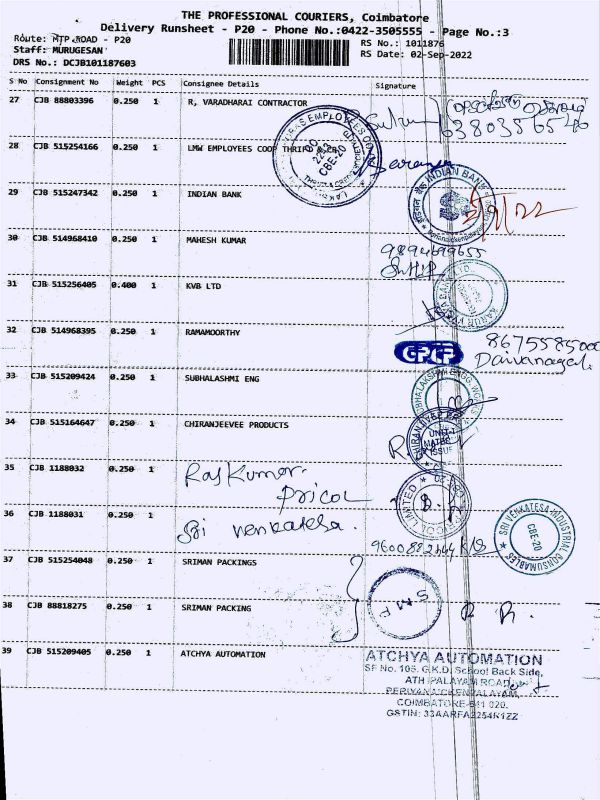 THE PROFESSIONAL COURIERS, Coimbatore
Delivery Runsheet - P20 - Phone No.:0422-3505555 - Page No.:3
Route: MTP ROAD - P20
RS No.: 1011876
Staff: MURUGESAN
RS Date: 02-Sep-2022
DRS No.: DCJB101187603
S No Consignment No Weight PCS Consignee Details Signature
27 CJB 88803396 0.250 1 R, VARADHARAI CONTRACTOR
6380356540
28 CJB 515254166 0.250 1 LMW EMPLOYEES COOP THRIFT
CBE-20
29 CJB 515247342 0.250 1 INDIAN BANK
INDIAN BANK
30 CJB 514968410 0.250 1 MAHESH KUMAR
9894699655
31 CJB 515256405 0.400 1 KVB LTD
32 CJB 514968395 0.250 1 RAMAMOORTHY
8675585000
33 CJB 515209424 0.250 1 SUBHALASHMI ENG
34 CJB 515164647 0.250 1 CHIRANJEEVEE PRODUCTS
UNIT-1
35 CJB 1188032 0.250 1 RajKumar
Pricol
36 CJB 1188031 0.250 1 Sri Venkatesa.
SRI VENKATESA INDUSTRIAL CONSUMABLES
CBE-20
37 CJB 515254048 0.250 1 SRIMAN PACKINGS
38 CJB 88818275 0.250 1 SRIMAN PACKING
S M P
R R.
39 CJB 515209405 0.250 1 ATCHYA AUTOMATION
ATCHYA AUTOMATION
SF No. 105, G.K.D. School Back Side,
ATHIPALAYAM ROAD,
COIMBATORE-641 020.